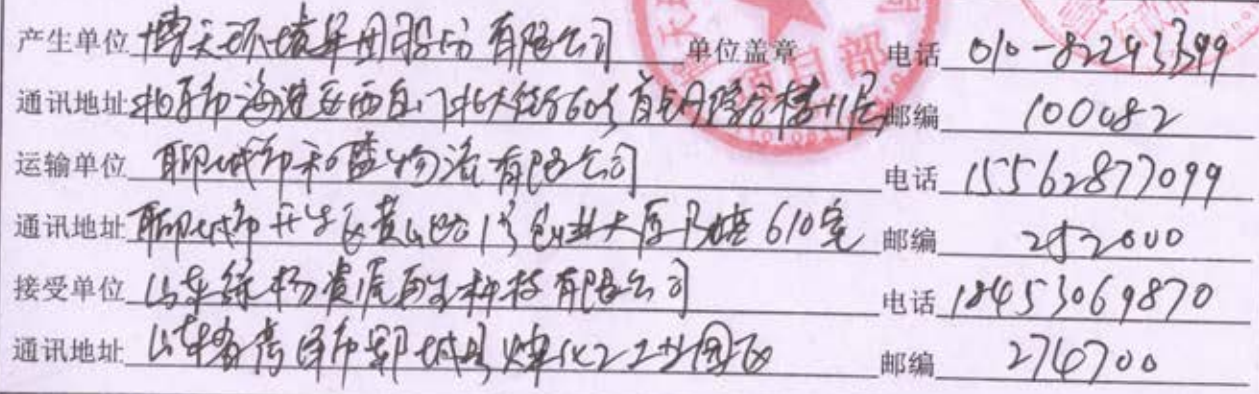 产生单位 博天环境集团股份有限公司 单位盖章 电话 010-82293399
通讯地址 北京市海淀区西直门北大街60号首钢综合楼11层 邮编 100082
运输单位 聊城市和益物流有限公司 电话 15562877099
通讯地址 聊城市开发区黄山路1号创业大厦B座610室 邮编 252000
接受单位 山东绿杨资源再生科技有限公司 电话 18453069870
通讯地址 山东省菏泽市郓城县煤化工工业园区 邮编 274700
项目部